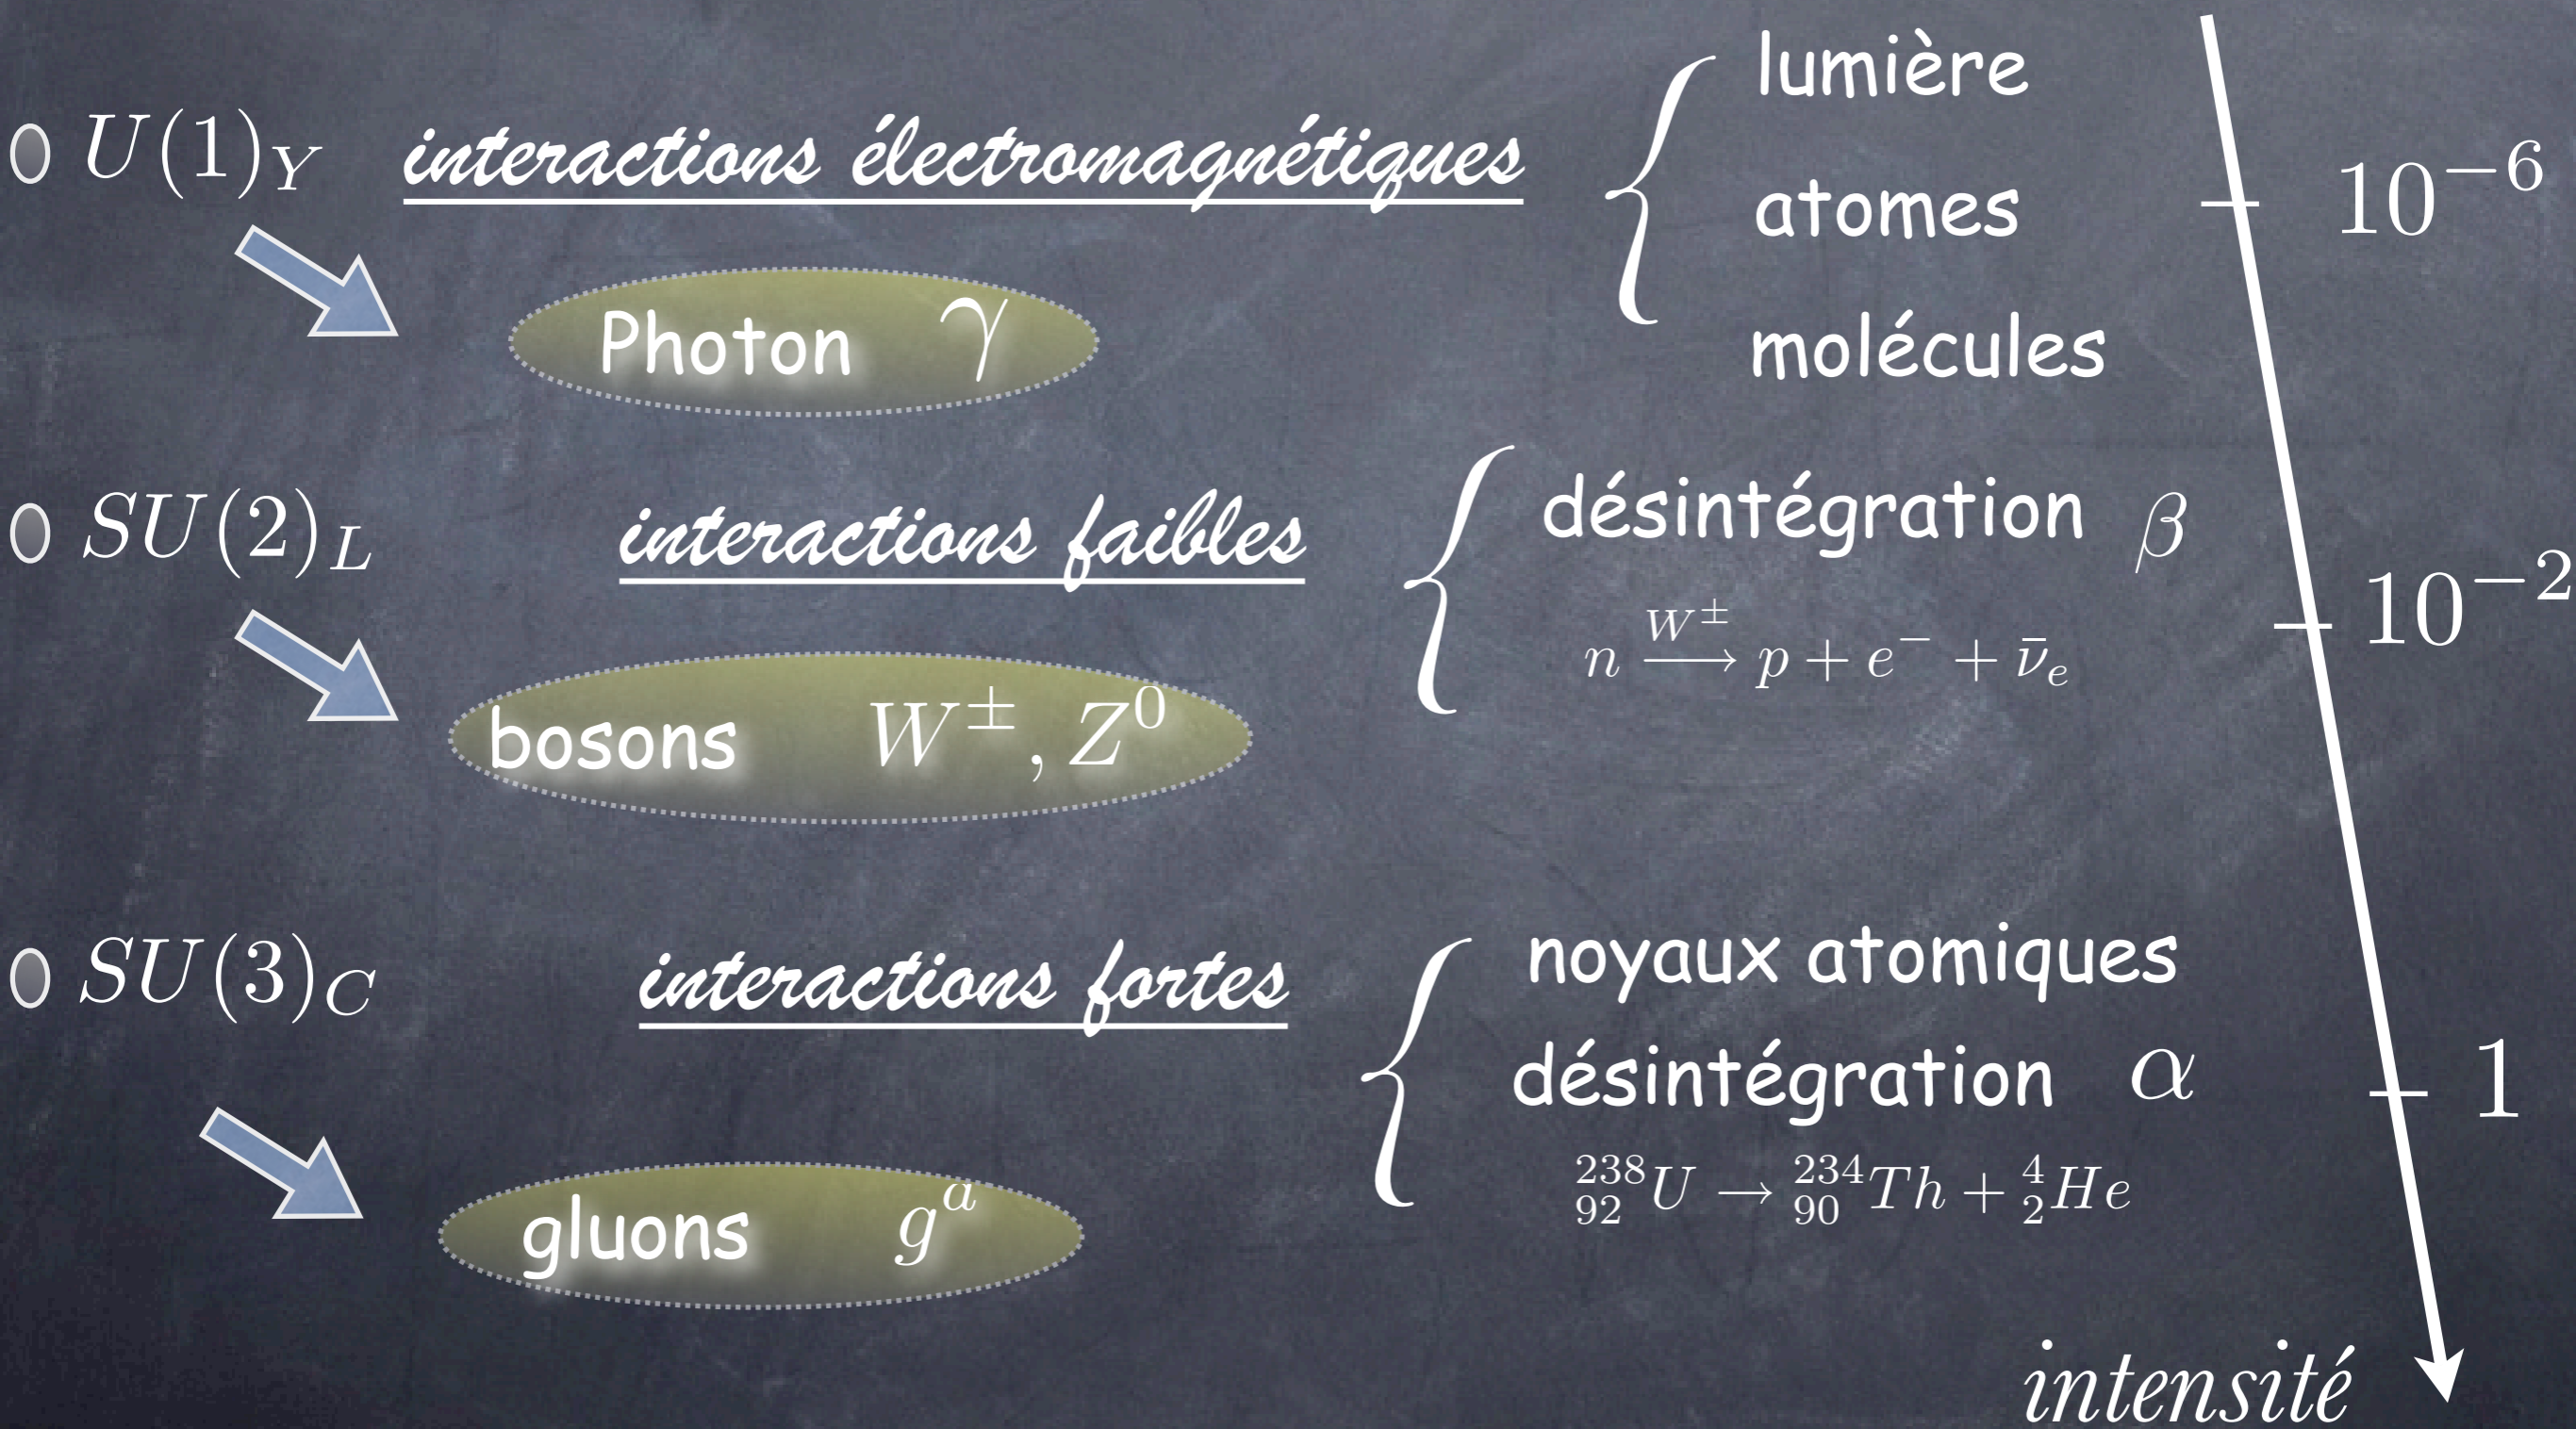 U(1)_Y interactions électromagnétiques
lumière
atomes
molécules
10^{-6}
Photon γ
SU(2)_L interactions faibles
désintégration β
n \xrightarrow{W^±} p + e^- + \bar{ν}_e
10^{-2}
bosons W^±, Z^0
SU(3)_C interactions fortes
noyaux atomiques
désintégration α
^{238}_{92}U → ^{234}_{90}Th + ^{4}_{2}He
1
gluons g^a
intensité